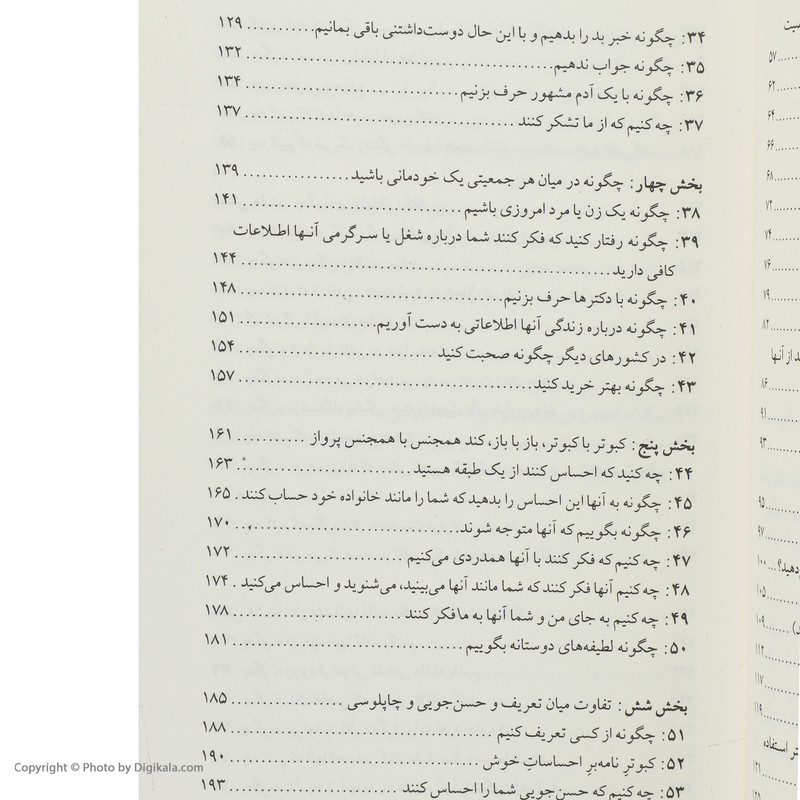 ۳۴: چگونه خبر بد را بدهیم و با این حال دوست‌داشتنی باقی بمانیم........... ۱۲۹
۳۵: چگونه جواب ندهیم.................................................. ۱۳۲
۳۶: چگونه با یک آدم مشهور حرف بزنیم.................................... ۱۳۴
۳۷: چه کنیم که از ما تشکر کنند ............................................ ۱۳۷
بخش چهار: چگونه در میان هر جمعیتی یک خودمانی باشید................. ۱۳۹
۳۸: چگونه یک زن یا مرد امروزی باشیم..................................... ۱۴۱
۳۹: چگونه رفتار کنید که فکر کنند شما درباره شغل یا سرگرمی آنها اطلاعات
کافی دارید............................................................ ۱۴۴
۴۰: چگونه با دکترها حرف بزنیم........................................... ۱۴۸
۴۱: چگونه درباره زندگی آنها اطلاعاتی به دست آوریم....................... ۱۵۱
۴۲: در کشورهای دیگر چگونه صحبت کنید ................................ ۱۵۴
۴۳: چگونه بهتر خرید کنید................................................ ۱۵۷
بخش پنج: کبوتر با کبوتر، باز با باز، کند همجنس با همجنس پرواز ........... ۱۶۱
۴۴: چه کنید که احساس کنند از یک طبقه هستید............................ ۱۶۳
۴۵: چگونه به آنها این احساس را بدهید که شما را مانند خانواده خود حساب کنند . ۱۶۵
۴۶: چگونه بگوییم که آنها متوجه شوند..................................... ۱۷۰
۴۷: چه کنیم که فکر کنند با آنها همدردی می‌کنیم ............................ ۱۷۲
۴۸: چه کنیم آنها فکر کنند که شما مانند آنها می‌بینید، می‌شنوید و احساس می‌کنید . ۱۷۴
۴۹: چه کنیم به جای من و شما آنها به ما فکر کنند ............................ ۱۷۸
۵۰: چگونه لطیفه‌های دوستانه بگوییم ...................................... ۱۸۱
بخش شش: تفاوت میان تعریف و حسن‌جویی و چاپلوسی ................... ۱۸۵
۵۱: چگونه از کسی تعریف کنیم ........................................... ۱۸۸
۵۲: کبوترِ نامه‌برِ احساساتِ خوش ......................................... ۱۹۰
۵۳: چه کنیم که حسن‌جویی شما را احساس کنند ........................... ۱۹۳
۵۷
۶۲
۶۴
۶۶
۶۸
۷۲
۷۴
۷۶
۷۹
۸۲
۸۶
۹۱
۹۳
۹۵
۹۷
۱۰۰
۱۰۵
۱۰۹
۱۱۲
۱۱۷
۱۱۹
۱۲۱
Copyright © Photo by Digikala.com